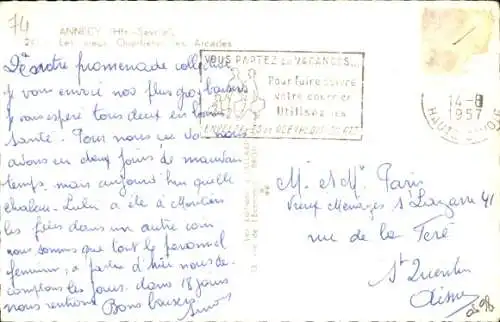 74
ANNECY (Hte-Savoie)
Les vieux Quartiers, les Arcades
De notre promenade collective
je vous envoie nos plus gros baisers
vous espère tous deux en bonne
santé. Pour nous ça va nous
avons eu deux jours de mauvais
temps, mais aujourd'hui quelle
chaleur. Lulu a été à
les fées dans un autre coin
nous sommes que tout le personnel
féminin, à partir d'hier nous
comptons les jours. dans 18 jours
nous rentrons Bons baisers
VOUS PARTEZ en VACANCES...
Pour faire suivre
votre courrier
Utilisez les
ENVELOPPES de REEXPEDITION
14-8
1957
HAUTE-SAVOIE
M. et Mme Paris
Vieux Ménages St Lazare 41
rue de la Fère
St Quentin
Aisne